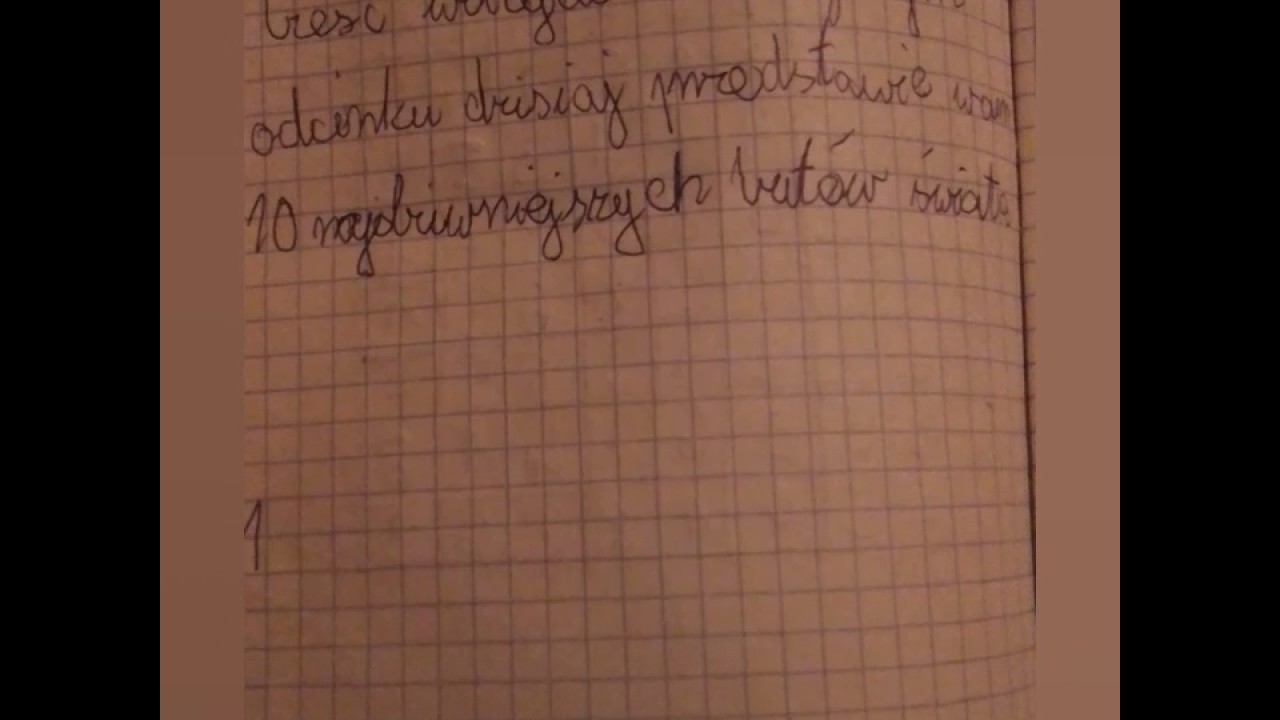 treść
odcinku dzisiaj przedstawie wam
10 najdziwniejszych butów świata
1